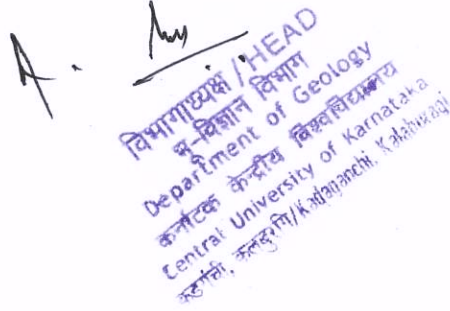 विभागाध्यक्ष /HEAD
भू-विज्ञान विभाग
Department of Geology
कर्नाटक केन्द्रीय विश्वविद्यालय
Central University of Karnataka
कडगंची, कलबुरगि/Kadaganchi, Kalaburagi